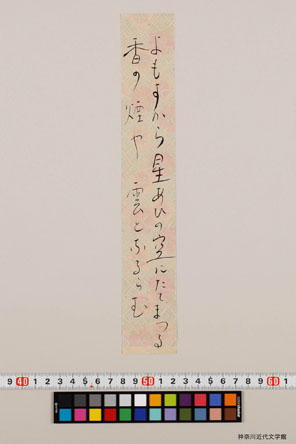 よもすから星あひの空にたてまつる
香の煙や雲となるらむ
9 40 1 2 3 4 5 6 7 8 9 50 1 2 3 4 5 6 7 8 9 60 1
神奈川近代文学館